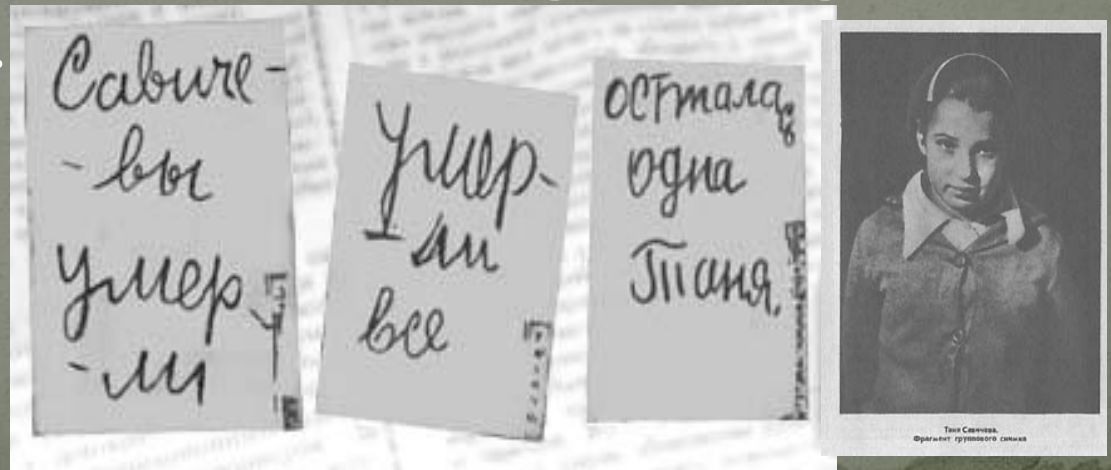 Савиче-
-вы
умер
-ли
Умер-
-ли
все
осттала
сь
одна
Таня.
Таня Савичева.
Фрагмент группового снимка